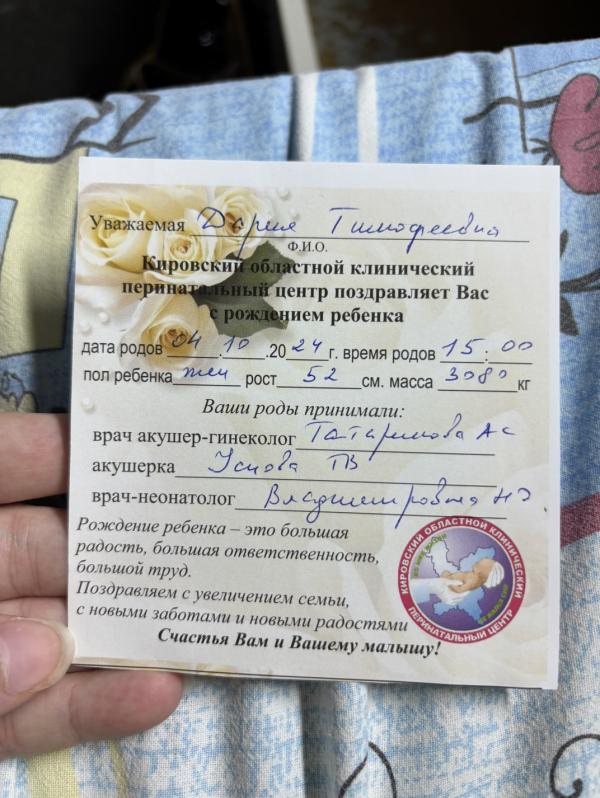 Уважаемая Дарья Тимофеевна
Ф.И.О.
Кировский областной клинический
перинатальный центр поздравляет Вас
с рождением ребенка
дата родов 04.10.2024г. время родов 15:00
пол ребенка жен рост 52 см. масса 3080 кг
Ваши роды принимали:
врач акушер-гинеколог АС
акушерка ТВ
врач-неонатолог
Рождение ребенка – это большая
радость, большая ответственность,
большой труд.
Поздравляем с увеличением семьи,
с новыми заботами и новыми радостями
Счастья Вам и Вашему малышу!
КИРОВСКИЙ ОБЛАСТНОЙ КЛИНИЧЕСКИЙ
ПЕРИНАТАЛЬНЫЙ ЦЕНТР